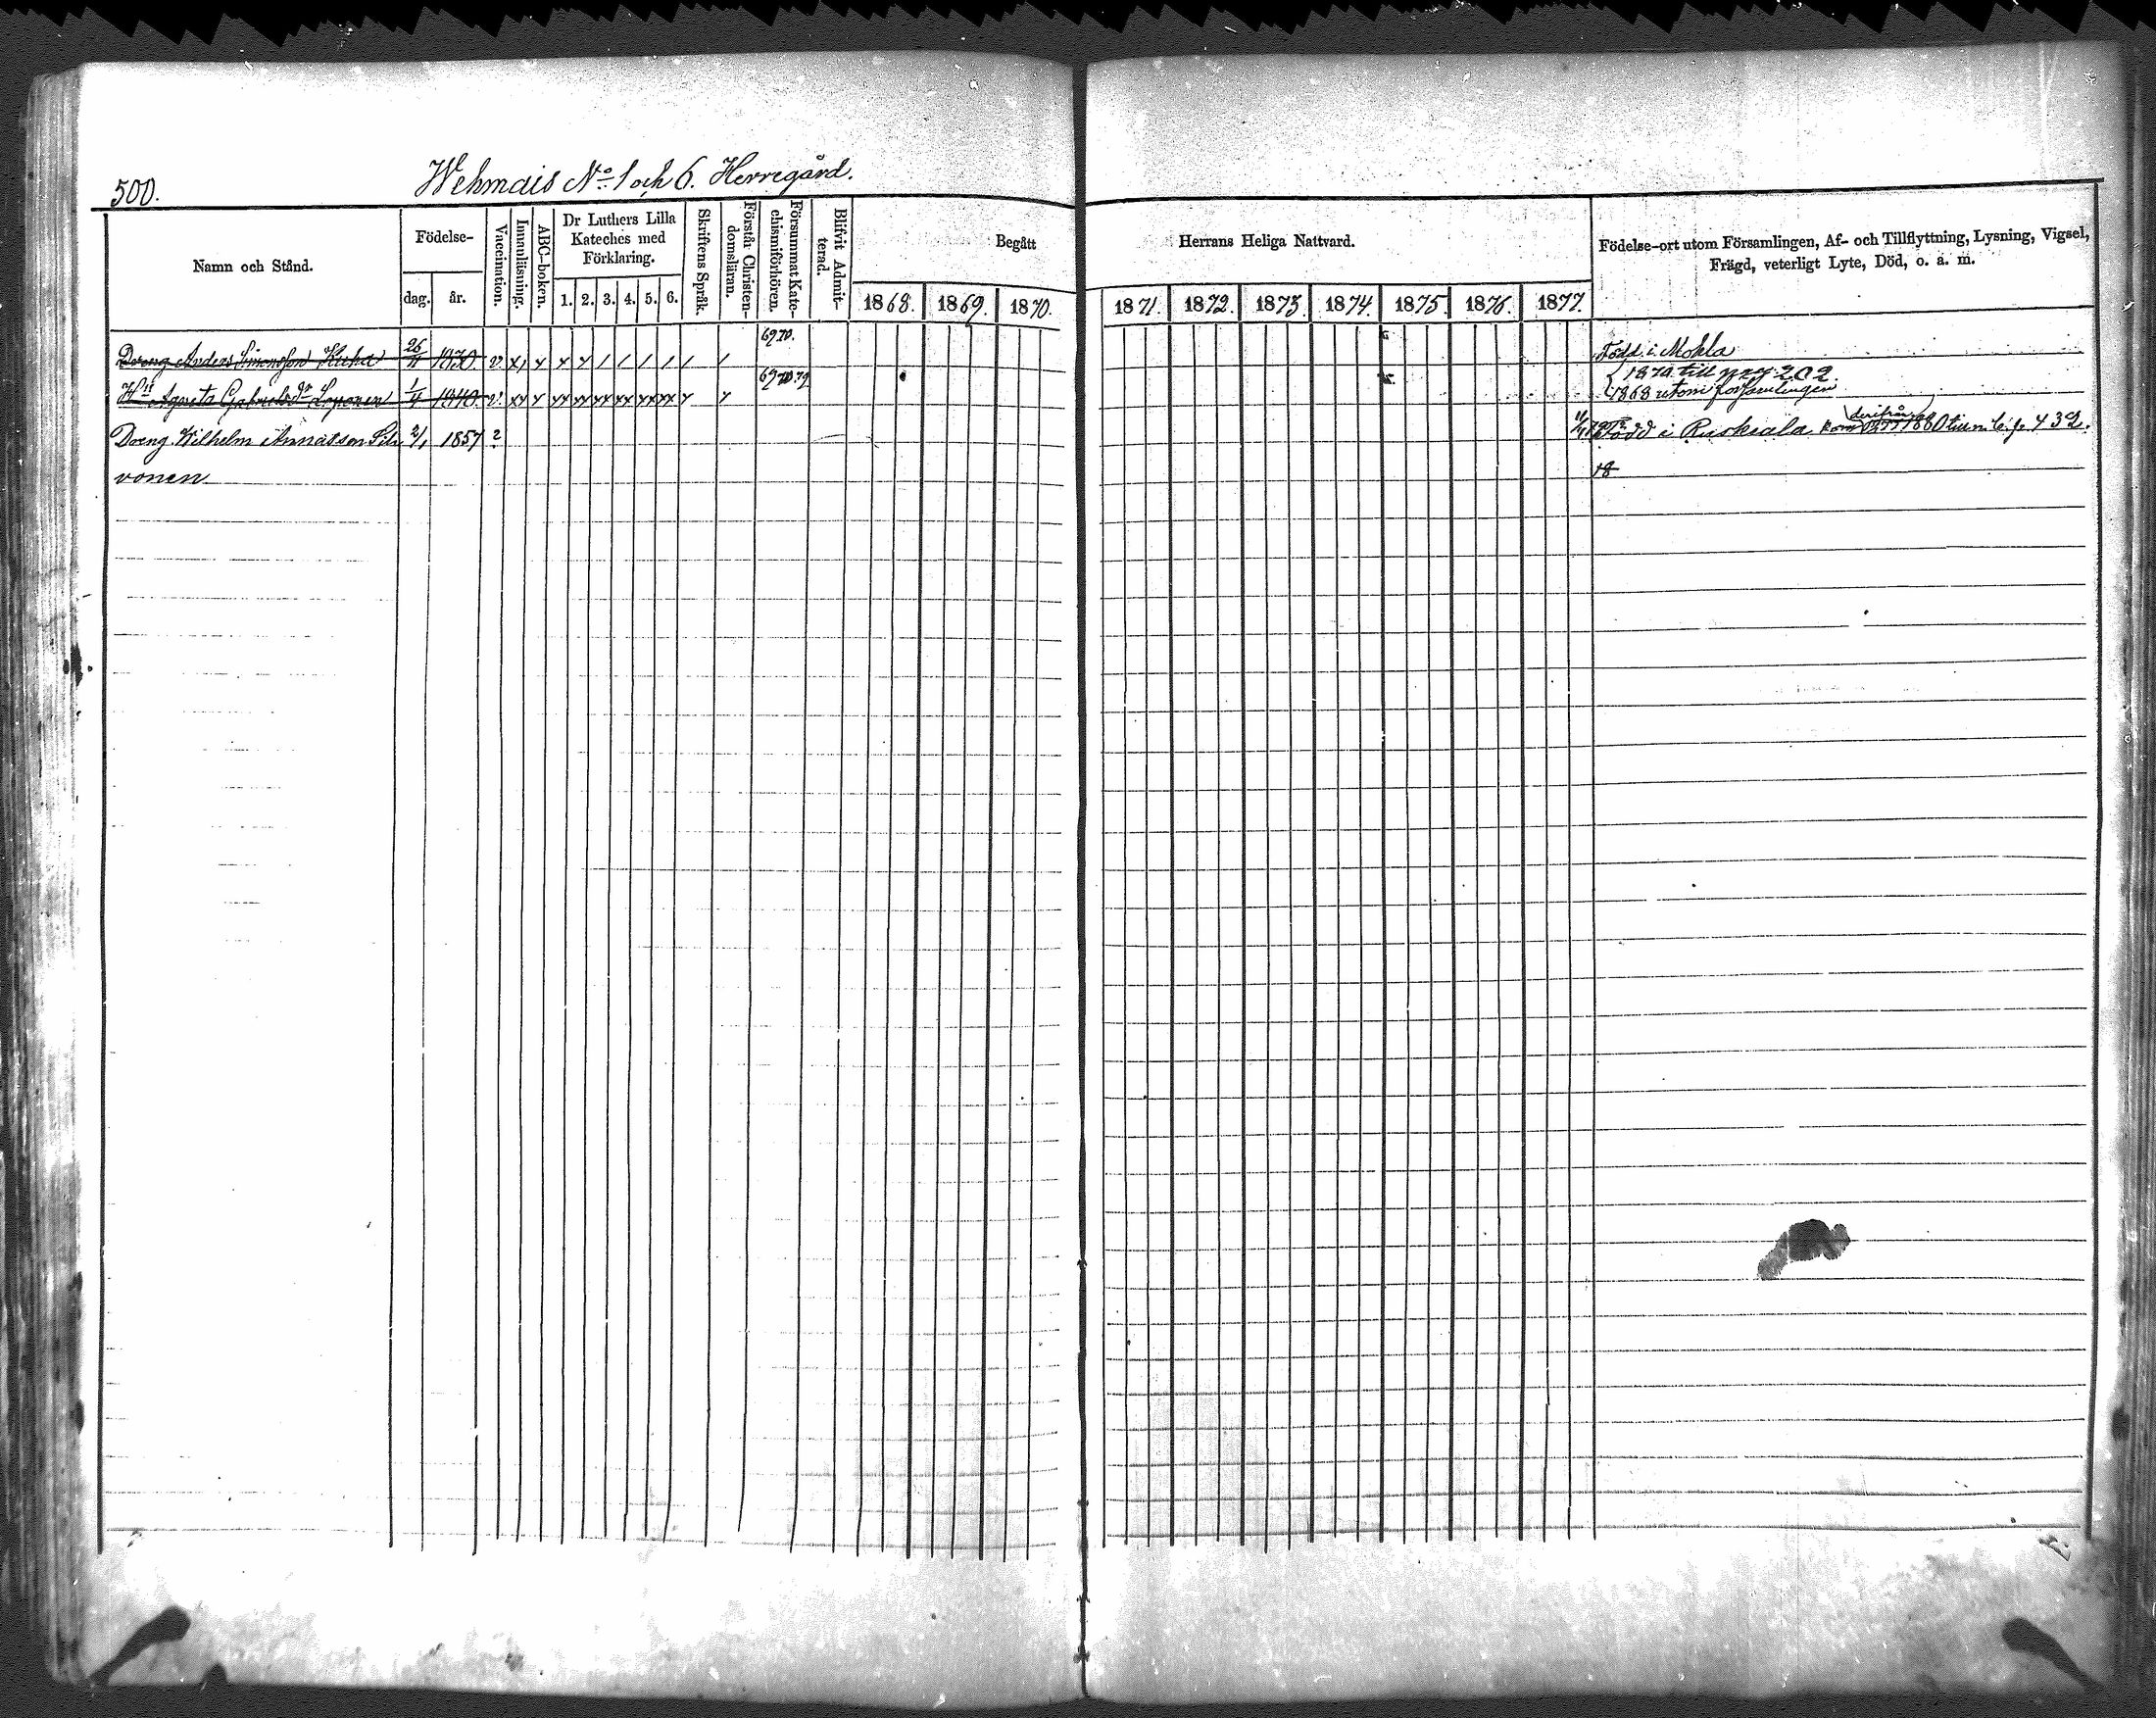 500.
Wehmais No 1 och 6. Herregård.
Namn och Stånd.
Födelse-
dag.
år.
Vaccination.
Innanläsning.
ABC-boken.
Dr Luthers Lilla
Kateches med
Förklaring.
1. 2. 3. 4. 5. 6.
Skriftens Språk.
Förstår Christen-
domsläran.
Försummat Kate-
chismiförhören.
Blifvit Admit-
terad.
Begått
Herrans Heliga Nattvard.
1868. 1869. 1870. 1871. 1872. 1873. 1874. 1875. 1876. 1877.
Födelse-ort utom Församlingen, Af- och Tillflyttning, Lysning, Vigsel,
Frägd, veterligt Lyte, Död, o. a. m.
69.70.
Dreng Anders Simonsson Kuha 26/11 v. x, x x x / / / / / / Född i Mohla
69 70. 72 1870 till pag 202
Hu Agneta Gabrielsdr Loponen 1/4 1840. v. xx x xx xx xx xx xx xx x x 1868 utom församlingen
Dreng Wilhelm Annatson Sih 2/1 1857 ? Född i Ruskeala kom derifrån 1880 432.
vonen 18